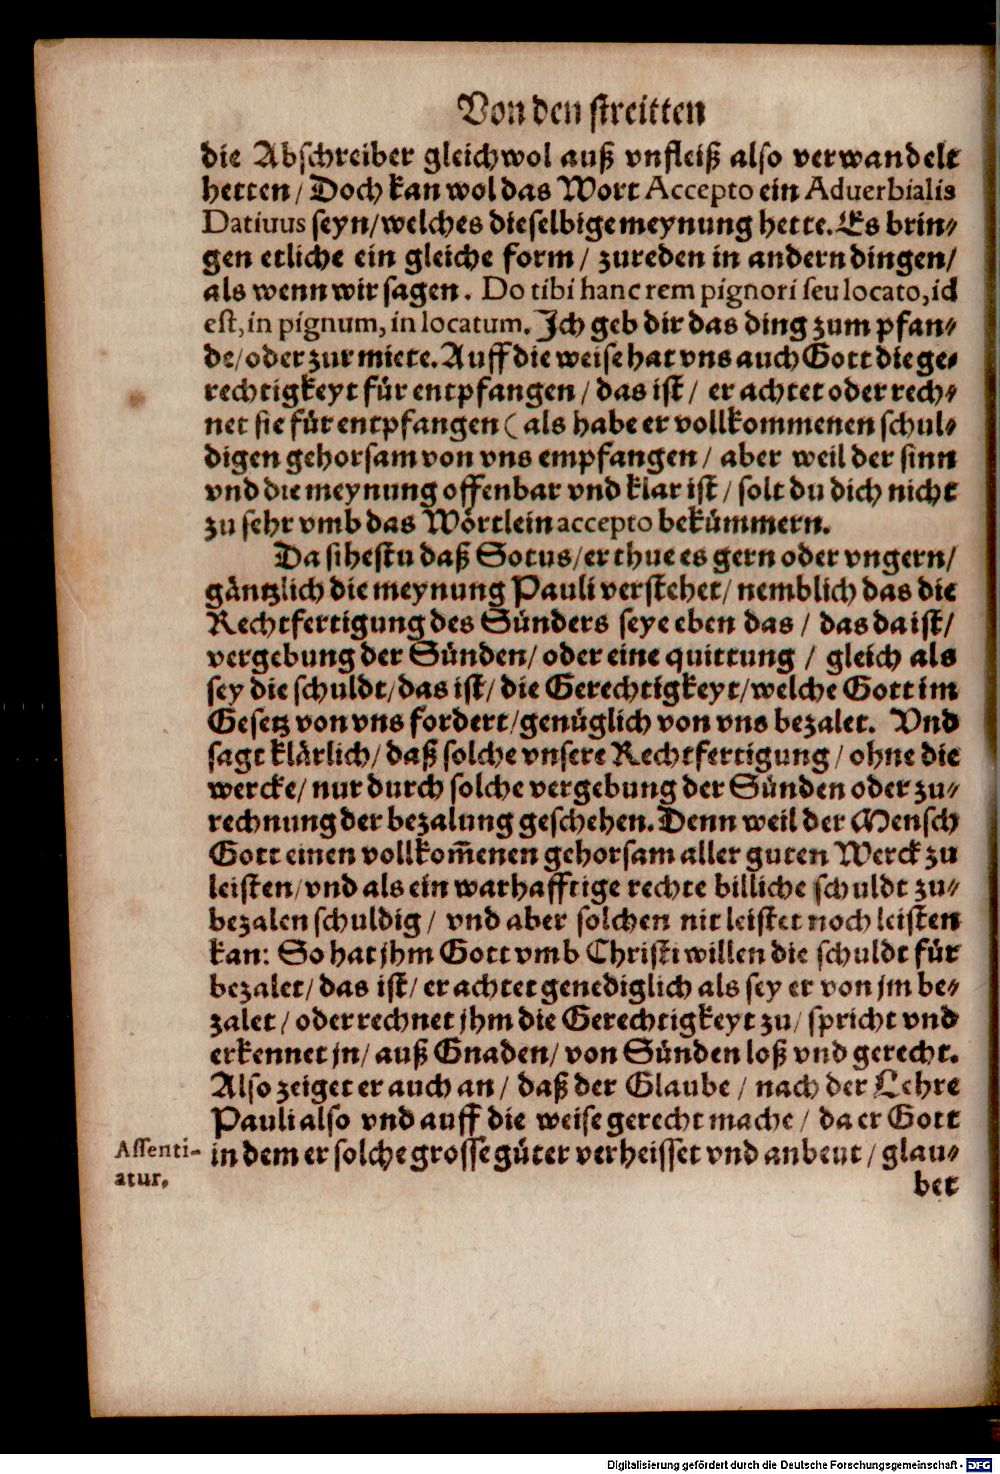 Von den streitten
die Abschreiber gleichwol auß vnfleiß also verwandelt
hetten / Doch kan wol das Wort Accepto ein Aduerbialis
Datiuus seyn/welches dieselbige meynung hette. Es brin⸗
gen etliche ein gleiche form / zureden in andern dingen/
als wenn wir sagen. Do tibi hanc rem pignori seu locato, id
est, in pignum, in locatum. Ich geb dir das ding zum pfan⸗
de/oder zur miete. Auff die weise hat vns auch Gott die ge⸗
rechtigkeyt für entpfangen / das ist / er achtet oder rech⸗
net sie für entpfangen (als habe er vollkommenen schul⸗
digen gehorsam von vns empfangen / aber weil der sinn
vnd die meynung offenbar vnd klar ist / solt du dich nicht
zu sehr vmb das Wörtlein accepto bekümmern.
Da sihestu daß Sotus/er thue es gern oder vngern/
gäntzlich die meynung Pauli verstehet/ nemblich das die
Rechtfertigung des Sünders seye eben das / das da ist/
vergebung der Sünden/ oder eine quittung / gleich als
sey die schuldt/das ist/ die Gerechtigkeyt/welche Gott im
Gesetz von vns fordert/genüglich von vns bezalet. Vnd
sagt klärlich/ daß solche vnsere Rechtfertigung / ohne die
wercke/ nur durch solche vergebung der Sünden oder zu⸗
rechnung der bezalung geschehen. Denn weil der Mensch
Gott einen vollkom̃enen gehorsam aller guten Werck zu
leisten/vnd als ein warhafftige rechte billiche schuldt zu⸗
bezalen schuldig / vnd aber solchen nit leistet noch leisten
kan: So hat jhm Gott vmb Christi willen die schuldt für
bezalet/ das ist/ er achtet genediglich als sey er von jm be⸗
zalet / oder rechnet jhm die Gerechtigkeyt zu/ spricht vnd
erkennet jn/ auß Gnaden/ von Sünden loß vnd gerecht.
Also zeiget er auch an / daß der Glaube / nach der Lehre
Pauli also vnd auff die weise gerecht mache / da er Gott
in dem er solche grosse güter verheisset vnd anbeut / glau⸗
Assenti-
atur.
bet
Digitalisierung gefördert durch die Deutsche Forschungsgemeinschaft - DFG